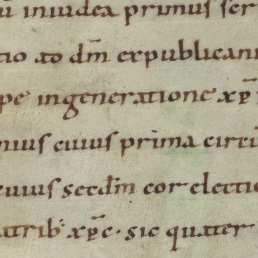 in iudea primus ser
tio ad dm̄ expublican
pe ingeneratione xp̄
nius cuius prima circū
cuius scdm̄ cor electio
atrib; xp̄c · sic quatter